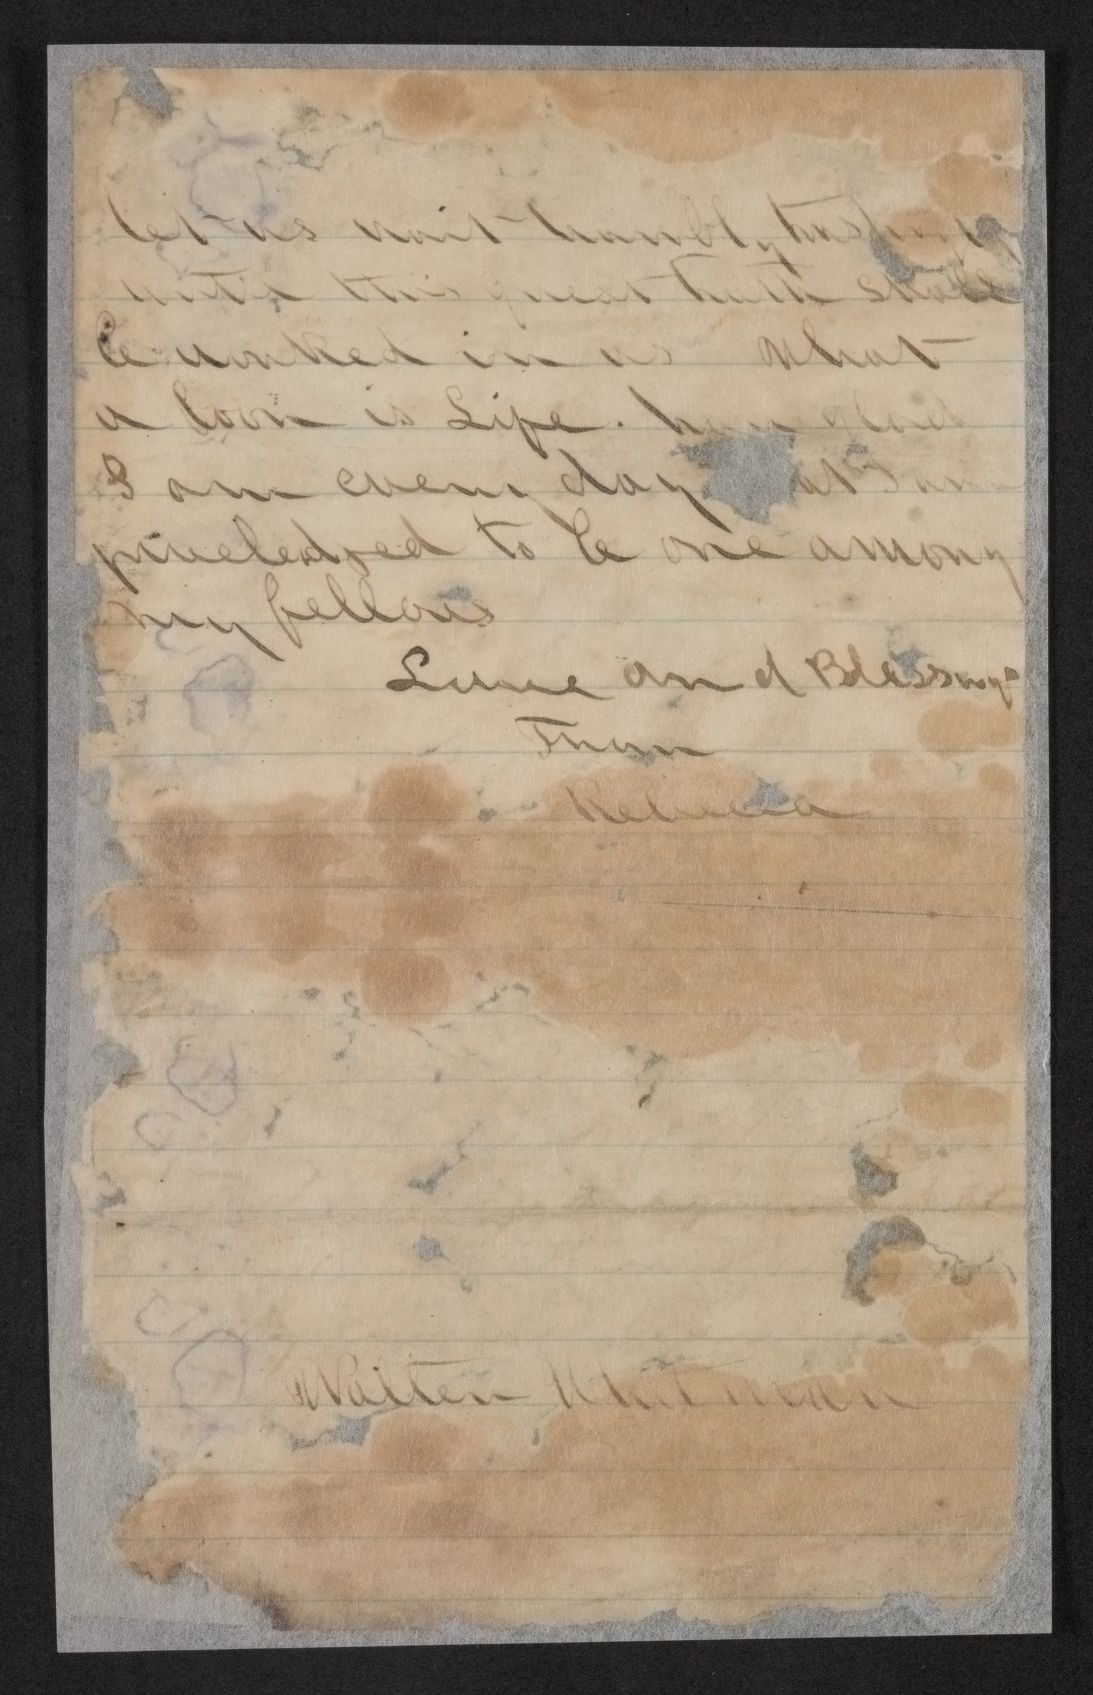 let us wait humbly trusting
until this great truth shall
be worked in us what
a boon is Life. how glad
I am every day at I am
priveledged to be one among
my fellows
Love and Blessings
From
Rebecca
Walter Whitman